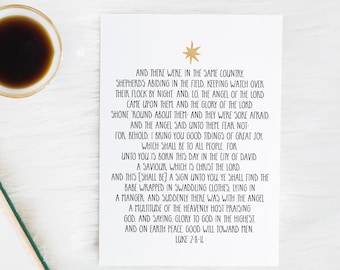 AND THERE WERE, IN THE SAME COUNTRY,
SHEPHERDS ABIDING IN THE FIELD, KEEPING WATCH OVER
THEIR FLOCK BY NIGHT. AND, LO, THE ANGEL OF THE LORD
CAME UPON THEM, AND THE GLORY OF THE LORD
SHONE 'ROUND ABOUT THEM: AND THEY WERE SORE AFRAID.
AND THE ANGEL SAID UNTO THEM, FEAR NOT:
FOR, BEHOLD, I BRING YOU GOOD TIDINGS OF GREAT JOY,
WHICH SHALL BE TO ALL PEOPLE. FOR
UNTO YOU IS BORN THIS DAY IN THE CITY OF DAVID
A SAVIOUR, WHICH IS CHRIST THE LORD.
AND THIS [SHALL BE] A SIGN UNTO YE SHALL FIND THE
BABE WRAPPED IN SWADDLING CLOTHES, LYING IN
A MANGER. AND SUDDENLY THERE WAS WITH THE ANGEL
A MULTITUDE OF THE HEAVENLY HOST PRAISING
GOD, AND SAYING, GLORY TO GOD IN THE HIGHEST,
AND ON EARTH PEACE, GOOD WILL TOWARD MEN.
LUKE 2:8-12